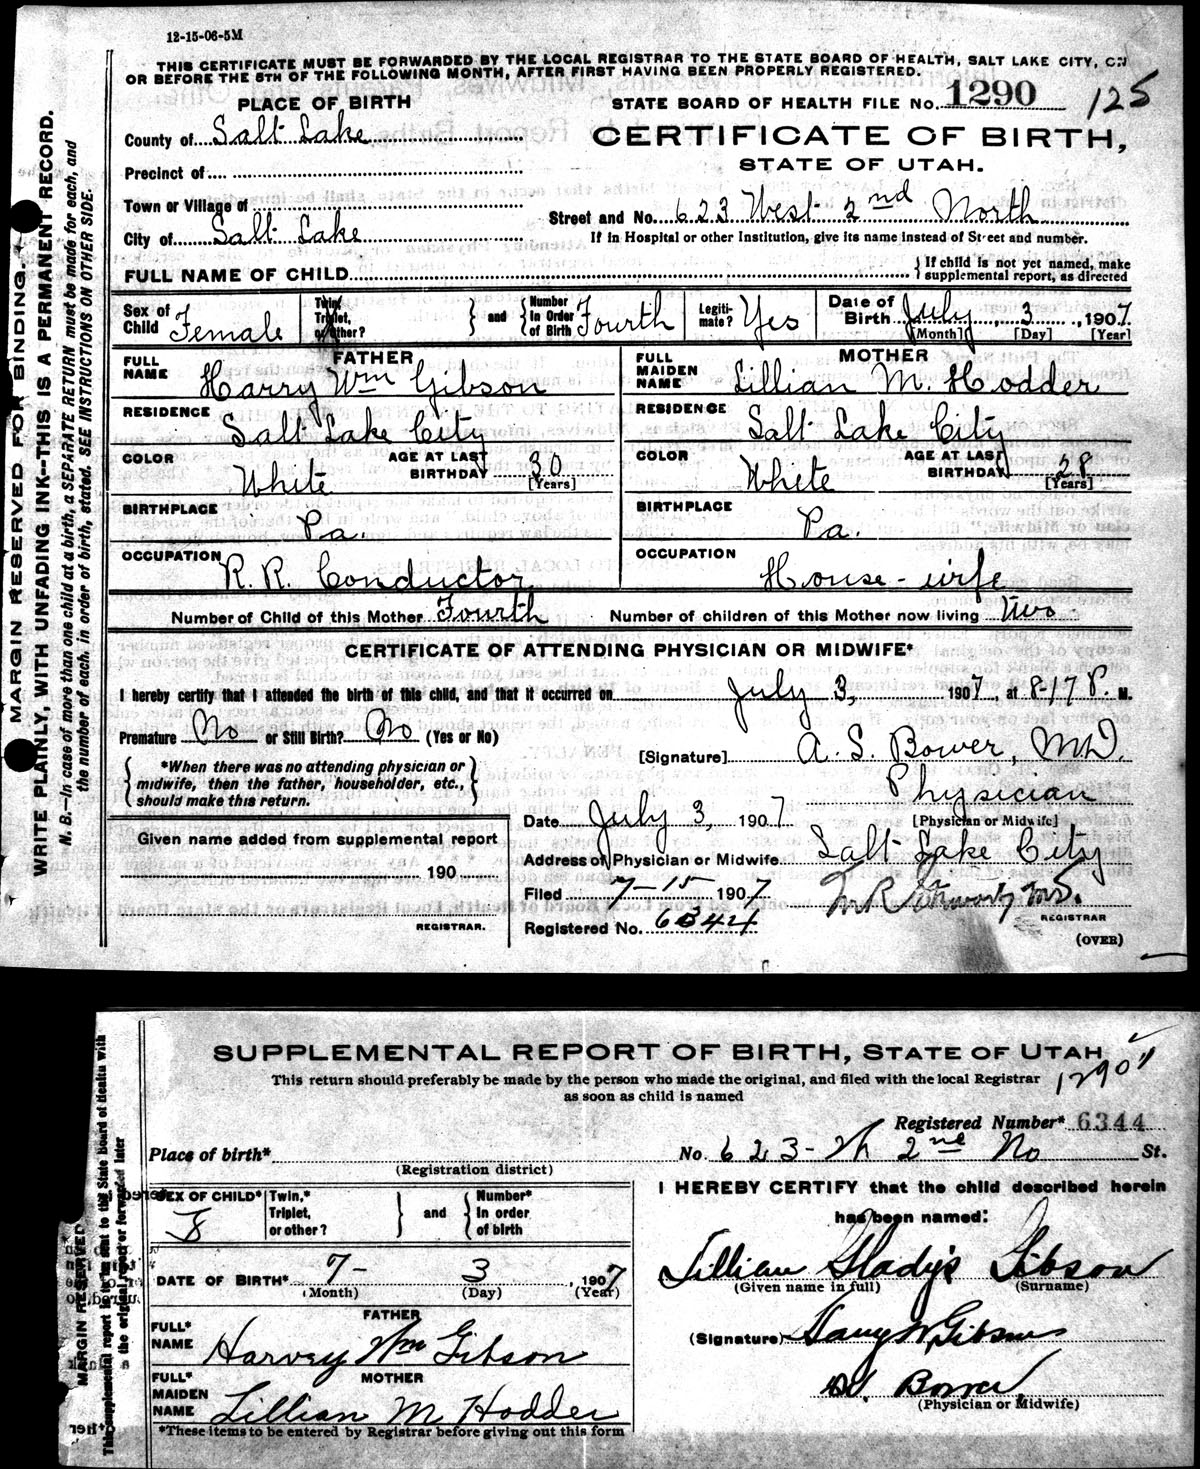 12-15-06-5M
THIS CERTIFICATE MUST BE FORWARDED BY THE LOCAL REGISTRAR TO THE STATE BOARD OF HEALTH, SALT LAKE CITY, ON
OR BEFORE THE 5TH OF THE FOLLOWING MONTH, AFTER FIRST HAVING BEEN PROPERLY REGISTERED.
PLACE OF BIRTH
STATE BOARD OF HEALTH FILE No. 1290 125
County of Salt Lake
CERTIFICATE OF BIRTH,
STATE OF UTAH.
Precinct of
Town or Village of
Street and No. 623 West 2nd North
City of Salt Lake
If in Hospital or other Institution, give its name instead of Street and number.
FULL NAME OF CHILD
If child is not yet named, make
supplemental report, as directed
Sex of Child Female
Twin, Triplet, or other?
and
Number in Order of Birth Fourth
Legitimate? Yes
Date of Birth July 3, 1907
[Month] [Day] [Year]
FATHER
FULL NAME Harry Wm Gibson
MOTHER
FULL MAIDEN NAME Lillian M. Hodder
RESIDENCE Salt Lake City
RESIDENCE Salt Lake City
COLOR White AGE AT LAST BIRTHDAY 30 [Years]
COLOR White AGE AT LAST BIRTHDAY 28 [Years]
BIRTHPLACE Pa.
BIRTHPLACE Pa.
OCCUPATION R. R. Conductor
OCCUPATION House-wife
Number of Child of this Mother Fourth Number of children of this Mother now living Two
CERTIFICATE OF ATTENDING PHYSICIAN OR MIDWIFE*
I hereby certify that I attended the birth of this child, and that it occurred on July 3, 1907, at 8-17 P. M.
Premature No or Still Birth? No (Yes or No)
[Signature] A. S. Bower, M.D.
*When there was no attending physician or
midwife, then the father, householder, etc.,
should make this return.
Physician
[Physician or Midwife]
Date July 3, 1907
Given name added from supplemental report
190
REGISTRAR.
Address of Physician or Midwife Salt Lake City
Filed 7-15 1907
REGISTRAR
Registered No. 6344
(OVER)
MARGIN RESERVED FOR BINDING.
WRITE PLAINLY, WITH UNFADING INK--THIS IS A PERMANENT RECORD.
N. B.—In case of more than one child at a birth, a SEPARATE RETURN must be made for each, and
the number of each, in order of birth, stated. SEE INSTRUCTIONS ON OTHER SIDE.
SUPPLEMENTAL REPORT OF BIRTH, STATE OF UTAH
This return should preferably be made by the person who made the original, and filed with the local Registrar
as soon as child is named
1290
Registered Number* 6344
Place of birth*
(Registration district)
No. 623 - W 2nd No St.
SEX OF CHILD* F
Twin,* Triplet, or other?
and
Number* In order of birth
I HEREBY CERTIFY that the child described herein
has been named:
DATE OF BIRTH* 7- 3, 1907
(Month) (Day) (Year)
Lillian Gladys Gibson
(Given name in full) (Surname)
FATHER
FULL* NAME Harvey Wm Gibson
(Signature) Harry W. Gibson
MOTHER
FULL* MAIDEN NAME Lillian M Hodder
Bower
(Physician or Midwife)
*These items to be entered by Registrar before giving out this form
MARGIN RESERVED
This supplemental report is to be sent to the State Board of Health with
the original report or forwarded later